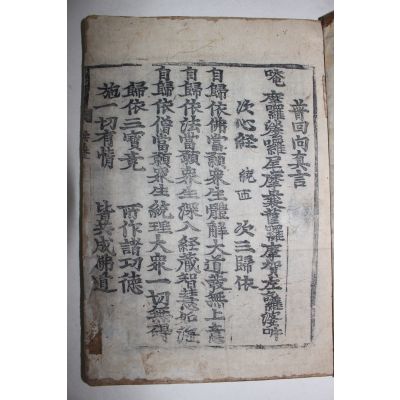 普回向真言
唵 娑摩囉娑摩囉 摩 囉摩賀左 囉 吽
次心経 次三歸依
自歸依佛當願衆生體解大道發無上意
自歸依法當願衆生深入経藏智慧如海
自歸依僧當願衆生統理大衆一切無碍
歸依三寶竟 所作諸功德
施一切有情 皆共成佛道